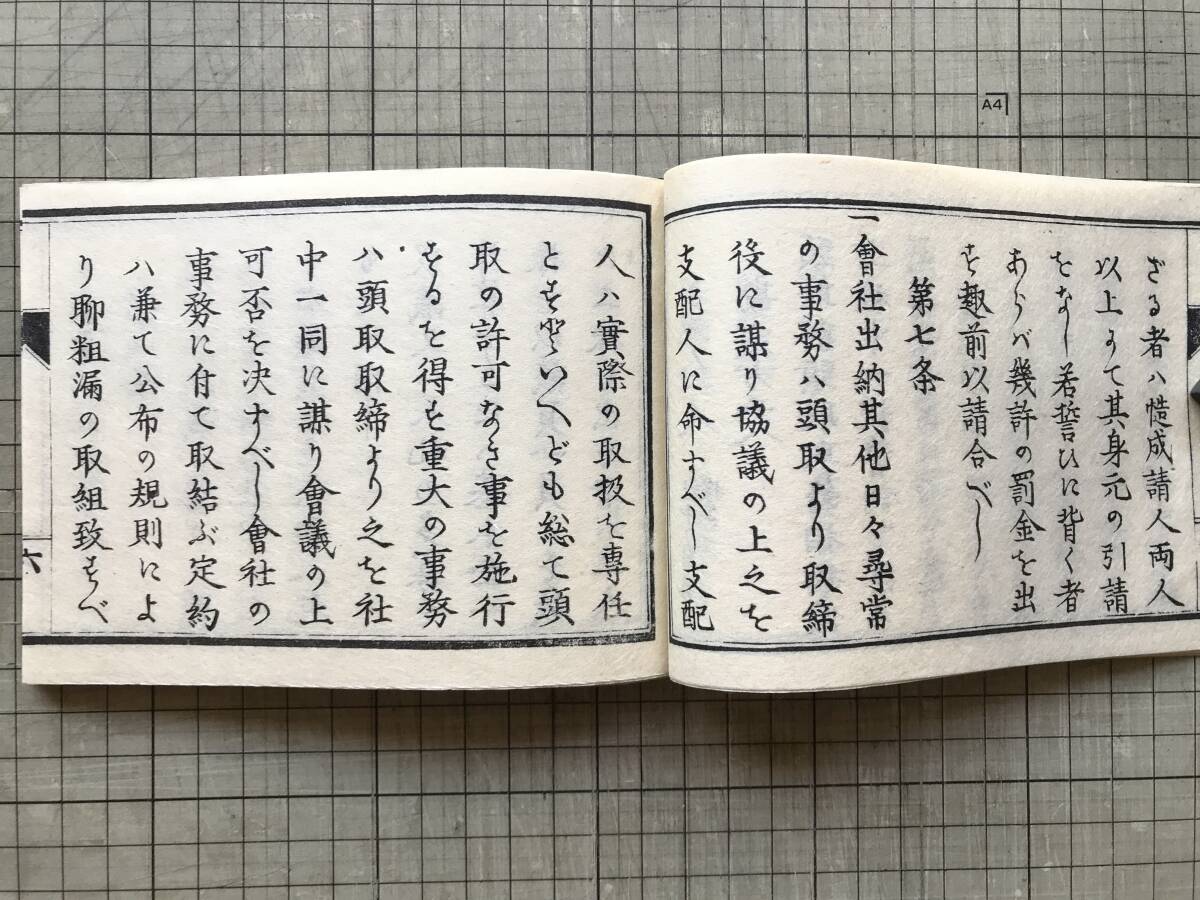 ざる者ハ慥成請人両人
以上ゟて其身元の引請
をなし若誓ひに背く者
あらバ幾許の罰金を出
す趣前以請合べし
第七条
一會社出納其他日々尋常
の事務ハ頭取より取締
役に謀り協議の上之を
支配人に命ずべし支配
人ハ實際の取扱を専任
とすといへども総て頭
取の許可なき事を施行
するを得ず重大の事務
ハ頭取取締より之を社
中一同に謀り會議の上
可否を决すべし會社の
事務に付て取結ぶ定約
ハ兼て公布の規則によ
り聊粗漏の取組致すべ
六
A4